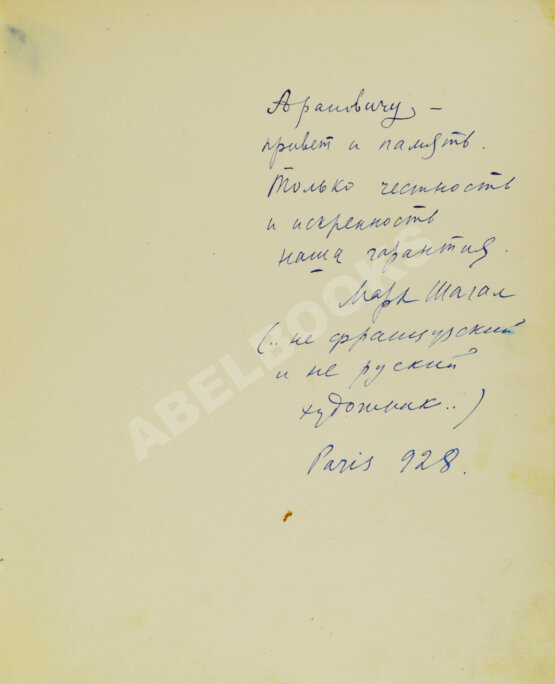 Араповичу, –
привет и память.
Только честность
и искренность
наша гарантия.
Марк Шагал
(.. не французский
и не руский
художник..)
Paris 928.
ABELBOOKS